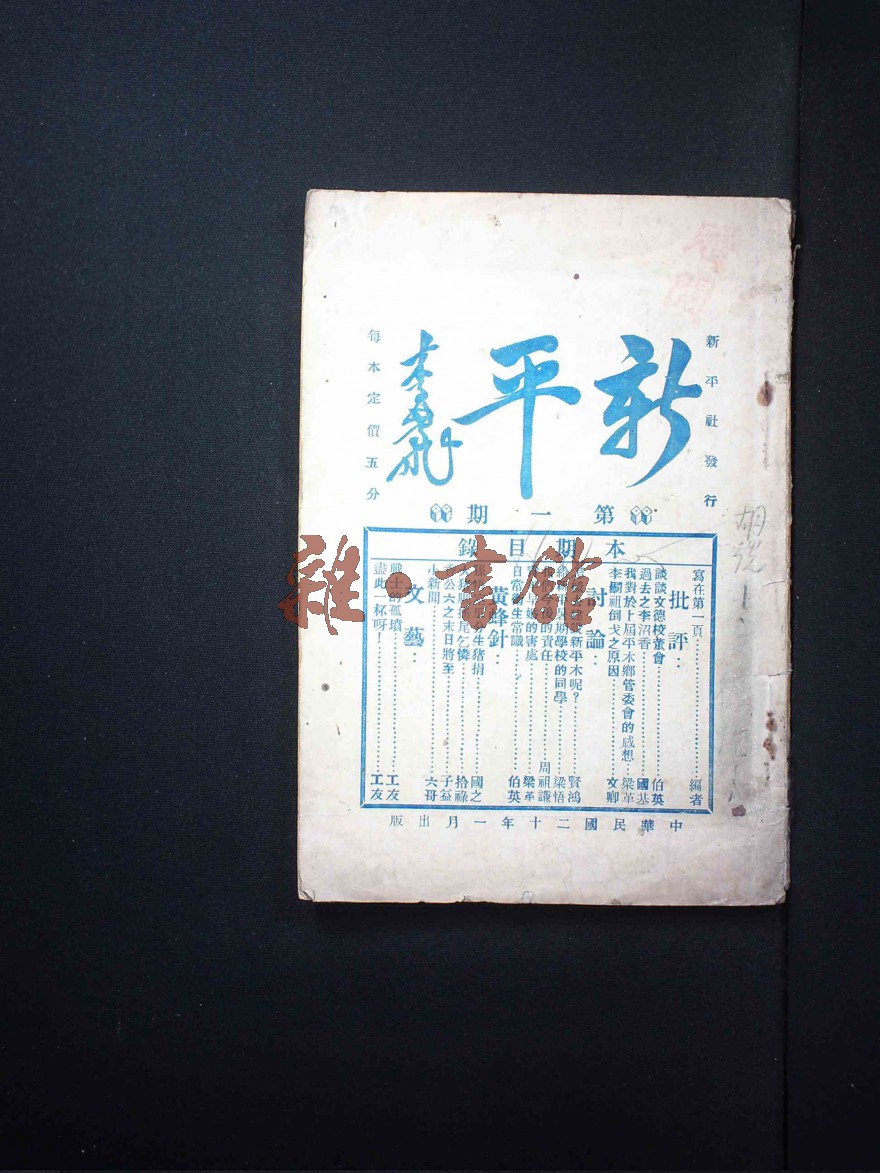 新平
新平社發行
每本定價五分
第一期
本期目錄
寫在第一頁⋯⋯編者
批評:
談談文德校董會⋯⋯伯英
過去之李沼香⋯⋯國基
我對於上屆平木鄉管委會的感想⋯梁革
李嗣祖倒戈之原因⋯⋯文卿
討論:
新平木呢?⋯⋯賢鴻
期學校的同學⋯⋯梁悟
後的責任⋯⋯周祖謙
的害處⋯⋯梁革
日常衛生常識⋯⋯伯英
黃蜂針:
生猪捐⋯⋯國之
尾乞憐⋯⋯拾祿
公六之末日將至⋯⋯子益
小新聞⋯⋯六哥
文藝:
戰士的孤墳⋯⋯工友
盡此一杯呀!⋯⋯工友
中華民國二十年一月出版
雜·書館